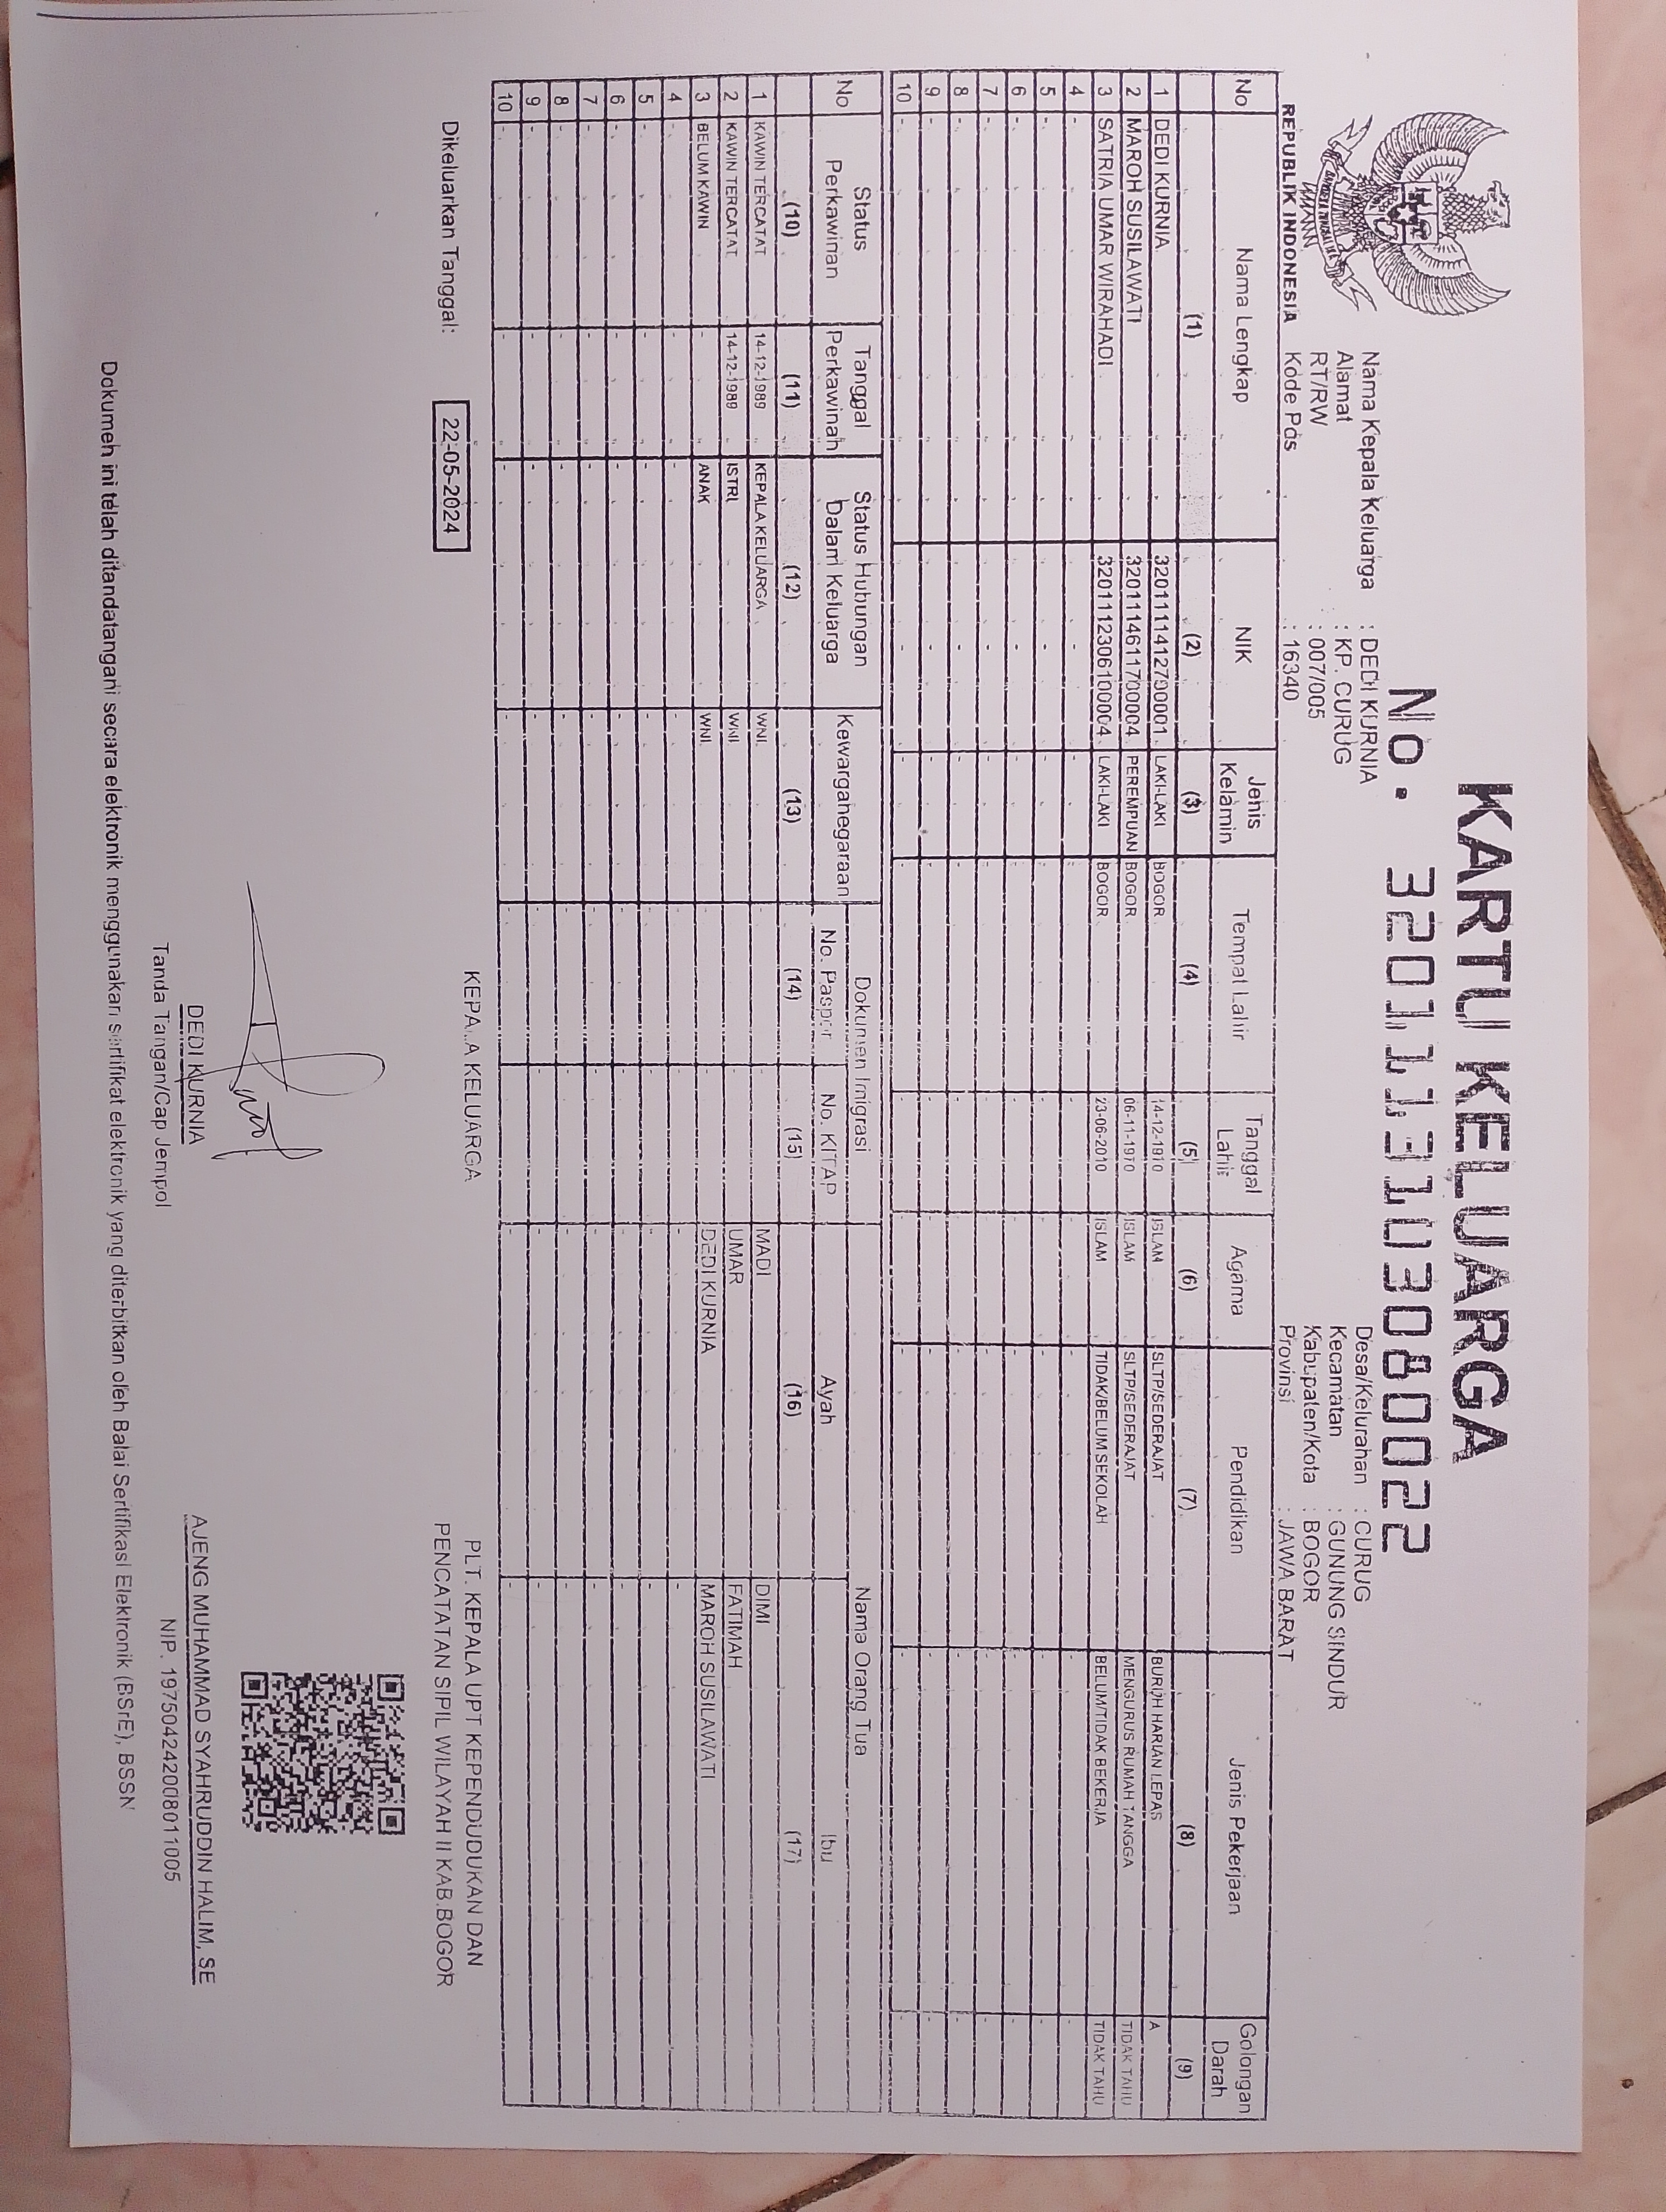 KARTU KELUARGA
No. 3201113103080022
REPUBLIK INDONESIA
Nama Kepala Keluarga : DEDI KURNIA
Alamat : KP. CURUG
RT/RW : 007/005
Kode Pos : 16340
Desa/Kelurahan : CURUG
Kecamatan : GUNUNG SINDUR
Kabupaten/Kota : BOGOR
Provinsi : JAWA BARAT
No Nama Lengkap NIK Jenis Kelamin Tempat Lahir Tanggal Lahir Agama Pendidikan Jenis Pekerjaan Golongan Darah
(1) (2) (3) (4) (5) (6) (7) (8) (9)
1 DEDI KURNIA LAKI-LAKI BOGOR 14-12-1970 ISLAM SLTP/SEDERAJAT BURUH HARIAN LEPAS A
2 MAROH SUSILAWATI 3201114611700004 PEREMPUAN BOGOR 06-11-1970 ISLAM SLTP/SEDERAJAT MENGURUS RUMAH TANGGA TIDAK TAHU
3 SATRIA UMAR WIRAHADI 3201112306100004 LAKI-LAKI BOGOR 23-06-2010 ISLAM TIDAK/BELUM SEKOLAH BELUM/TIDAK BEKERJA TIDAK TAHU
4 - - - - - - - - -
5 - - - - - - - - -
6 - - - - - - - - -
7 - - - - - - - - -
8 - - - - - - - - -
9 - - - - - - - - -
10 - - - - - - - - -
No Status Perkawinan Tanggal Perkawinan Status Hubungan Dalam Keluarga Kewarganegaraan Dokumen Imigrasi Nama Orang Tua
No. Paspor No. KITAP Ayah Ibu
(10) (11) (12) (13) (14) (15) (16) (17)
1 KAWIN TERCATAT 14-12-1989 KEPALA KELUARGA WNI - - MADI DIMI
2 KAWIN TERCATAT 14-12-1989 ISTRI WNI - - UMAR FATIMAH
3 BELUM KAWIN - ANAK WNI - - DEDI KURNIA MAROH SUSILAWATI
4 - - - - - - - -
5 - - - - - - - -
6 - - - - - - - -
7 - - - - - - - -
8 - - - - - - - -
9 - - - - - - - -
10 - - - - - - - -
Dikeluarkan Tanggal: 22-05-2024
KEPALA KELUARGA
DEDI KURNIA
Tanda Tangan/Cap Jempol
PLT. KEPALA UPT KEPENDUDUKAN DAN
PENCATATAN SIPIL WILAYAH II KAB.BOGOR
AJENG MUHAMMAD SYAHRUDDIN HALIM, SE
NIP. 197504242008011005
Dokumen ini telah ditandatangani secara elektronik menggunakan sertifikat elektronik yang diterbitkan oleh Balai Sertifikasi Elektronik (BSrE), BSSN